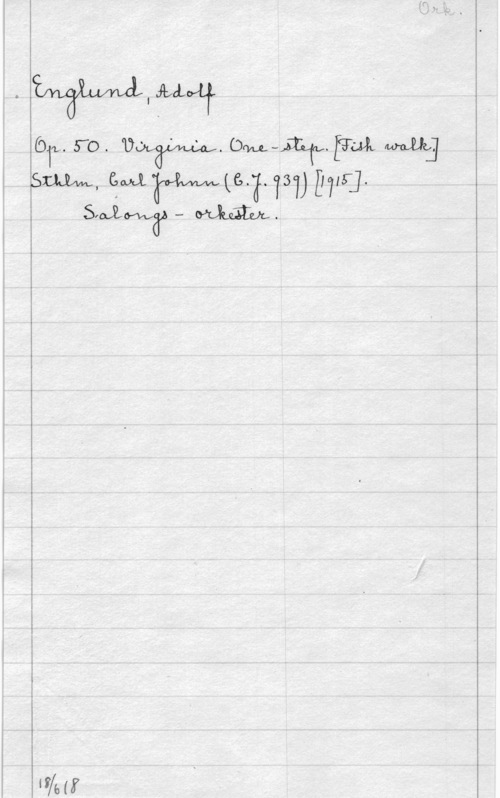 Ork.
Englund, Adolf
Op. 50. Virginia. One-step. [Fish walk.]
Sthlm, Carl Johnn (C.J. 939) [1915].
Salongs-orkester.
18/6 18